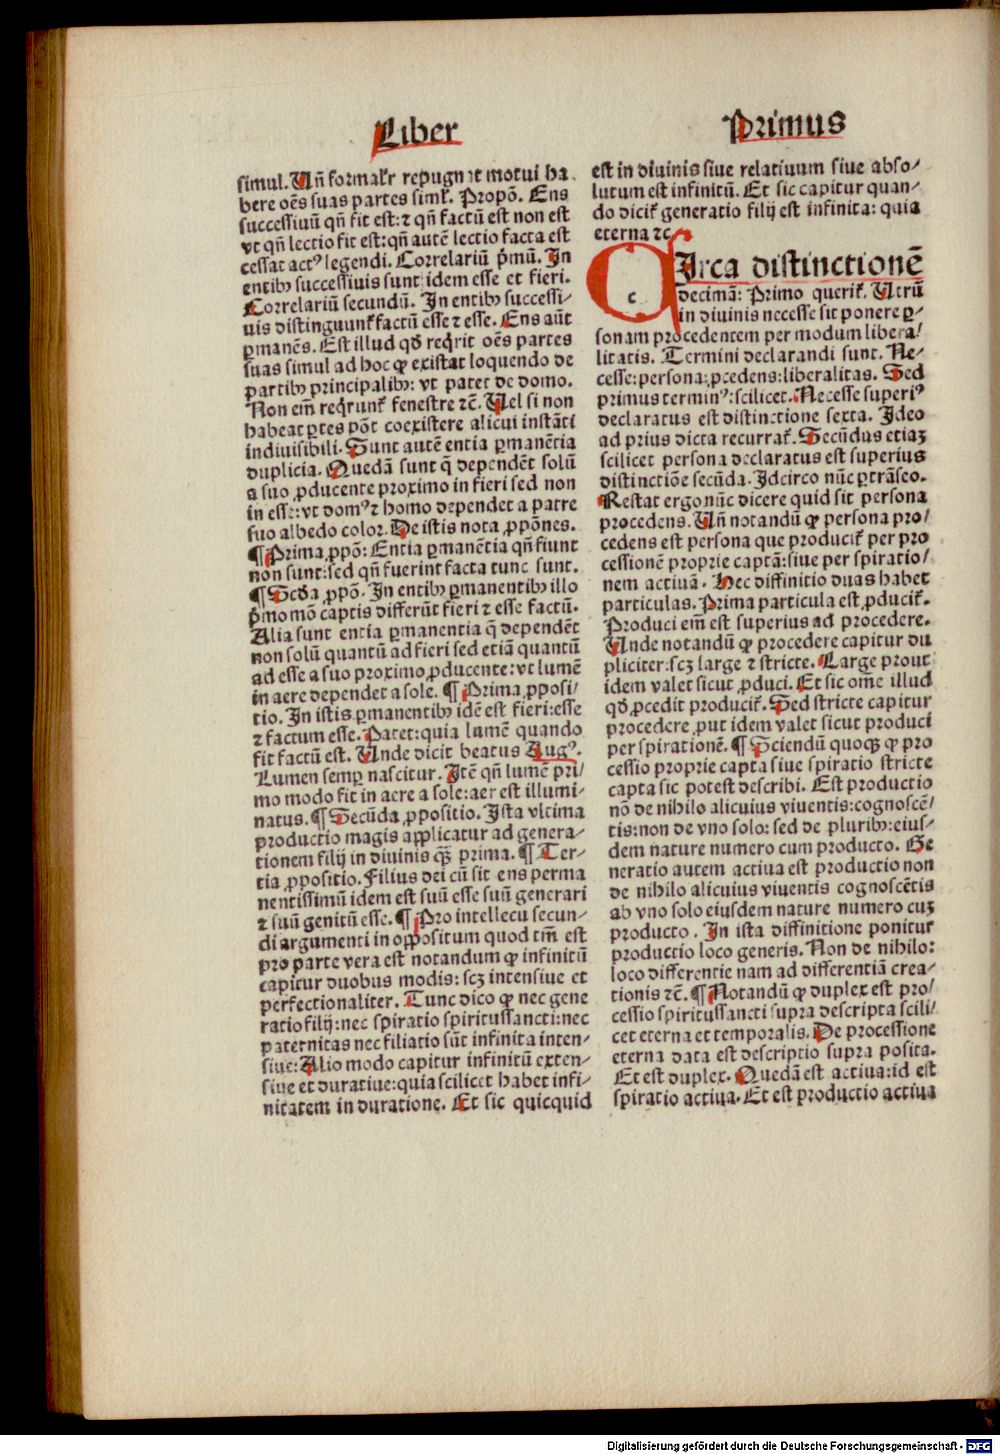 Liber
Primus
simul. Uñ formalr̃ repugnat motui ha
bere oẽs suas partes simł. Propõ. Ens
successiuũ qñ fit est: ⁊ qñ factũ est non est
vt qñ lectio fit est: qñ autẽ lectio facta est
cessat actꝰ legendi. Correlariũ p̃mũ. In
entibꝰ successiuis sunt idem esse et fieri.
Correlariũ secundũ. In entibꝰ successi⸗
uis distinguunt᷑ factũ esse ⁊ esse. Ens aũt
ꝑmanẽs. Est illud qð reqͥrit oẽs partes
suas simul ad hoc ꝙ existat loquendo de
partibꝰ principalibꝰ: vt patet de domo.
Non em̃ reqͥrunt᷑ fenestre ⁊c̃. Uel si non
habeat ꝑtes põt coexistere alicui instãti
indiuisibili. Sunt autẽ entia ꝑmanẽtia
duplicia. Quedã sunt q̃ dependẽt solũ
a suo ꝓducente proximo in fieri sed non
in esse: vt domꝰ ⁊ homo dependet a patre
suo albedo color. De istis nota ꝓpõnes.
¶ Prima ꝓpõ: Entia ꝑmanẽtia qñ fiunt
non sunt: sed qñ fuerint facta tunc sunt.
¶ Scða ꝓpõ. In entibꝰ ꝑmanentibꝰ illo
p̃mo mõ captis differũt fieri ⁊ esse factũ.
Alia sunt entia ꝑmanentia q̃ dependẽt
non solũ quantũ ad fieri sed etiã quantũ
ad esse a suo proximo ꝓducente: vt lumẽ
in aere dependet a sole. ¶ Prima ꝓposi⸗
tio. In istis ꝑmanentibꝰ idẽ est fieri: esse
⁊ factum esse. Patet: quia lumẽ quando
fit factũ est. Unde dicit beatus Augꝰ.
Lumen semꝑ nascitur. Itẽ qñ lumẽ pri⸗
mo modo fit in aere a sole: aer est illumi⸗
natus. ¶ Secũda ꝓpositio. Ista vltima
productio magis applicatur ad genera⸗
tionem filij in diuinis qȝ̃ prima. ¶ Ter⸗
tia ꝓpositio. Filius dei cũ sit ens perma
nentissimũ idem est suũ esse suũ generari
⁊ suũ genitũ esse. ¶ Pro intellecu secun⸗
di argumenti in oppositum quod tm̃ est
pro parte vera est notandum ꝙ infinitũ
capitur duobus modis: scȝ intensiue et
perfectionaliter. Tunc dico ꝙ nec gene
ratio filij: nec spiratio spiritussancti: nec
paternitas nec filiatio sũt infinita inten⸗
siue: Alio modo capitur infinitũ exten⸗
siue et duratiue: quia scilicet habet infi⸗
nitatem in duratione. Et sic quicquid
est in diuinis siue relatiuum siue abso⸗
lutum est infinitũ. Et sic capitur quan⸗
do dicit᷑ generatio filij est infinita: quia
eterna ⁊c.
CIrca distinctionẽ
decimã: Primo querit᷑. Utrũ
in diuinis necesse sit ponere ꝑ⸗
sonam procedentem per modum libera⸗
litatis. Termini declarandi sunt. Ne⸗
cesse: persona: ꝓcedens: liberalitas. Sed
primus terminꝰ: scilicet. Necesse superiꝰ
declaratus est distinctione sexta. Ideo
ad prius dicta recurrat᷑. Secũdus etiaȝ
scilicet persona declaratus est superius
distinctiõe secũda. Idcirco nũc ꝑtrãseo.
Restat ergo nũc dicere quid sit persona
procedens. Uñ notandũ ꝙ persona pro⸗
cedens est persona que producit᷑ per pro
cessionẽ proprie captã: siue per spiratio⸗
nem actiuã. Hec diffinitio duas habet
particulas. Prima particula est ꝓducit᷑.
Produci em̃ est superius ad procedere.
Unde notandũ ꝙ procedere capitur du
pliciter: scȝ large ⁊ stricte. Large prout
idem valet sicut ꝓduci. Et sic om̃e illud
qð ꝓcedit producit᷑. Sed stricte capitur
procedere ꝓut idem valet sicut produci
per spirationẽ. ¶ Sciendũ quoqȝ ꝙ pro
cessio proprie capta siue spiratio stricte
capta sic potest describi. Est productio
nõ de nihilo alicuius viuentis: cognoscẽ⸗
tis: non de vno solo: sed de pluribꝰ: eius⸗
dem nature numero cum producto. Ge
neratio autem actiua est productio non
de nihilo alicuius viuentis cognoscẽtis
ab vno solo eiusdem nature numero cuȝ
producto. In ista diffinitione ponitur
productio loco generis. Non de nihilo:
loco differentie nam ad differentiã crea⸗
tionis ⁊c̃. ¶ Notandũ ꝙ duplex est pro⸗
cessio spiritussancti supra descripta scili⸗
cet eterna et temporalis. De processione
eterna data est descriptio supra posita.
Et est duplex. Quedã est actiua: id est
spiratio actiua. Et est productio actiua
Digitalisierung gefördert durch die Deutsche Forschungsgemeinschaft - DFG